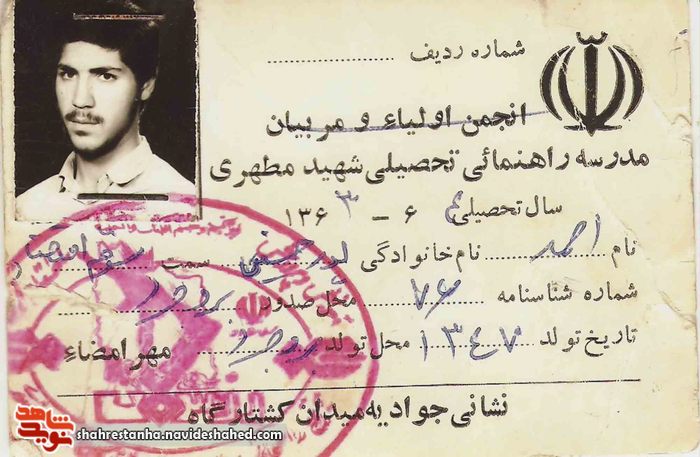 شماره ردیف
انجمن اولیاء و مربیان
مدرسه راهنمائی تحصیلی شهید مطهری
سال تحصیلی ۶۴ - ۱۳۶۳
نام احمد نام خانوادگی پورحسینی سمت سوم
شماره شناسنامه ۷۶ محل صدور بروجرد
تاریخ تولد ۱۳۴۷ محل تولد بروجرد مهر امضاء
نشانی جوادیه میدان کشتارگاه
شاهد
نوید
shahrestanha.navideshahed.com